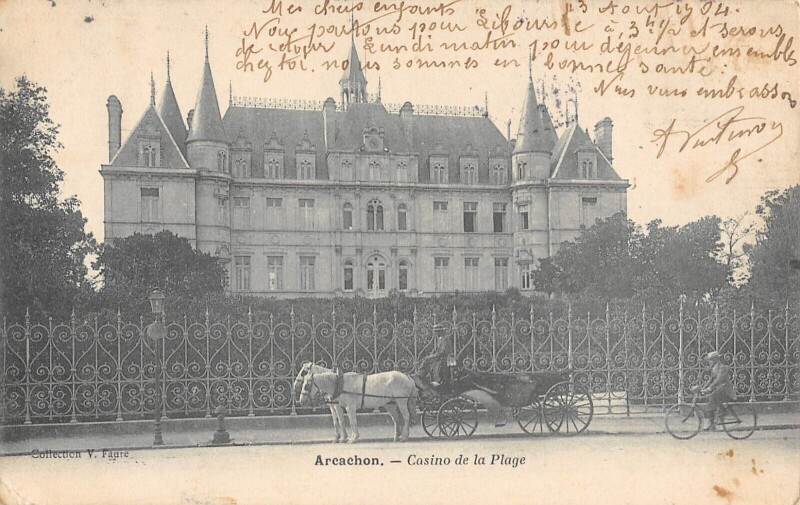 Mes chers enfants 13 Aout 1904.
Nous partons pour Libourne à 3h ½ et serons
de retour Lundi matin pour déjeuner ensemble
chez toi. nous sommes en bonne santé.
Nous vous embrassons
Collection V. Faure
Arcachon. – Casino de la Plage